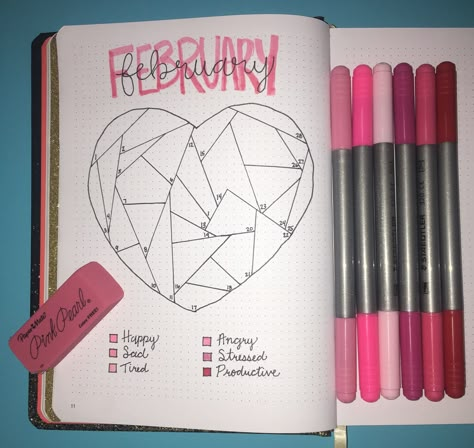 FEBRUARY
february
28
2
12
1
15
26
27
3
6
7
14
23
24
13
14
20
25
22
5
9
8
19
21
10
11
18
16
17
Paper Mate
Pink Pearl
Happy
Angry
Sad
Stressed
Tired
Productive
STAEDTLER
11